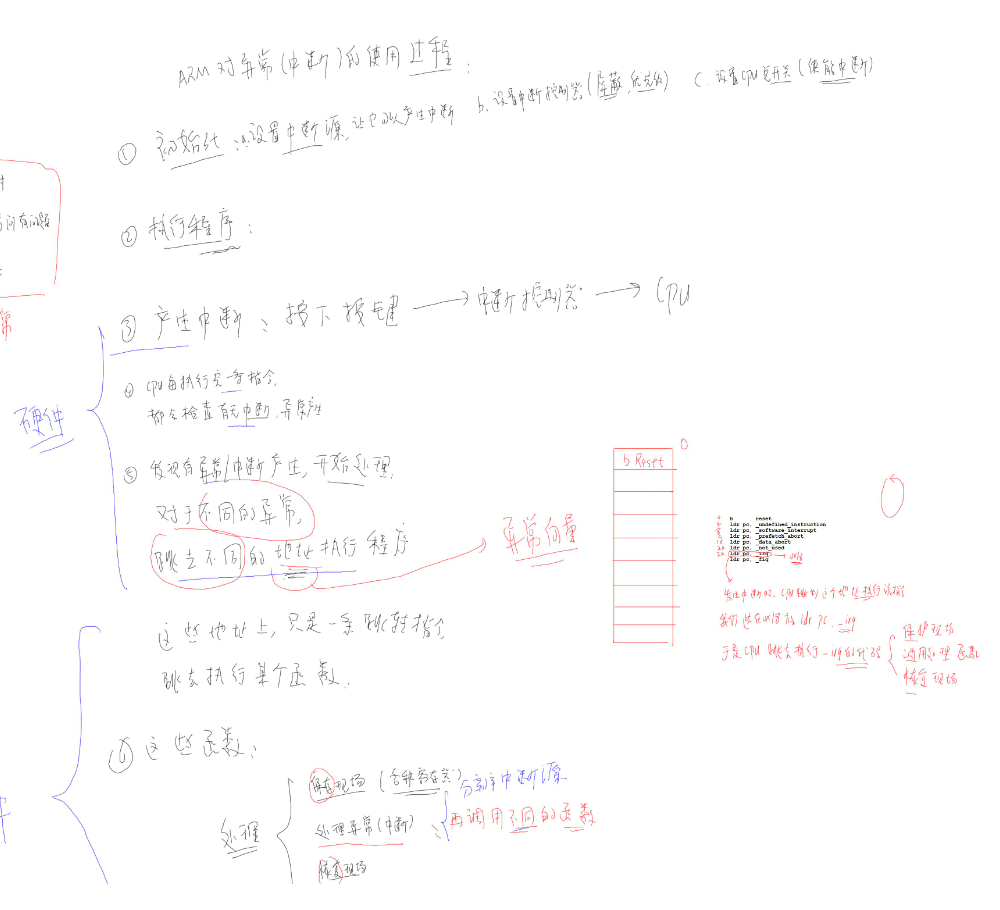 ARM对异常(中断)的使用过程:
① 初始化: a.设置中断源,让它可以产生中断 b.设置中断控制器(屏蔽,优先级) c.设置CPU总开关(使能中断)
问有问题
常
② 执行程序:
③ 产生中断: 按下按键 → 中断控制器 → CPU
硬件
④ CPU每执行完一条指令,
都会检查有无中断/异常产生
⑤ 发现有异常/中断产生,开始处理.
对于不同的异常,
跳去不同的地址执行程序
异常向量
这些地址上,只是一条跳转指令,
跳去执行某个函数.
⑥ 这些函数:
处理
保存现场 (各种寄存器)
处理异常(中断):
分辨中断源
再调用不同的函数
恢复现场
0
b Reset
b reset
ldr pc, _undefined_instruction
ldr pc, _software_interrupt
ldr pc, _prefetch_abort
ldr pc, _data_abort
ldr pc, _not_used
ldr pc, _irq
ldr pc, _fiq
发生中断时, CPU跳到这个地址执行该指令
ldr pc, _irq
于是CPU跳去执行_irq的代码
保护现场
调用处理函数
恢复现场